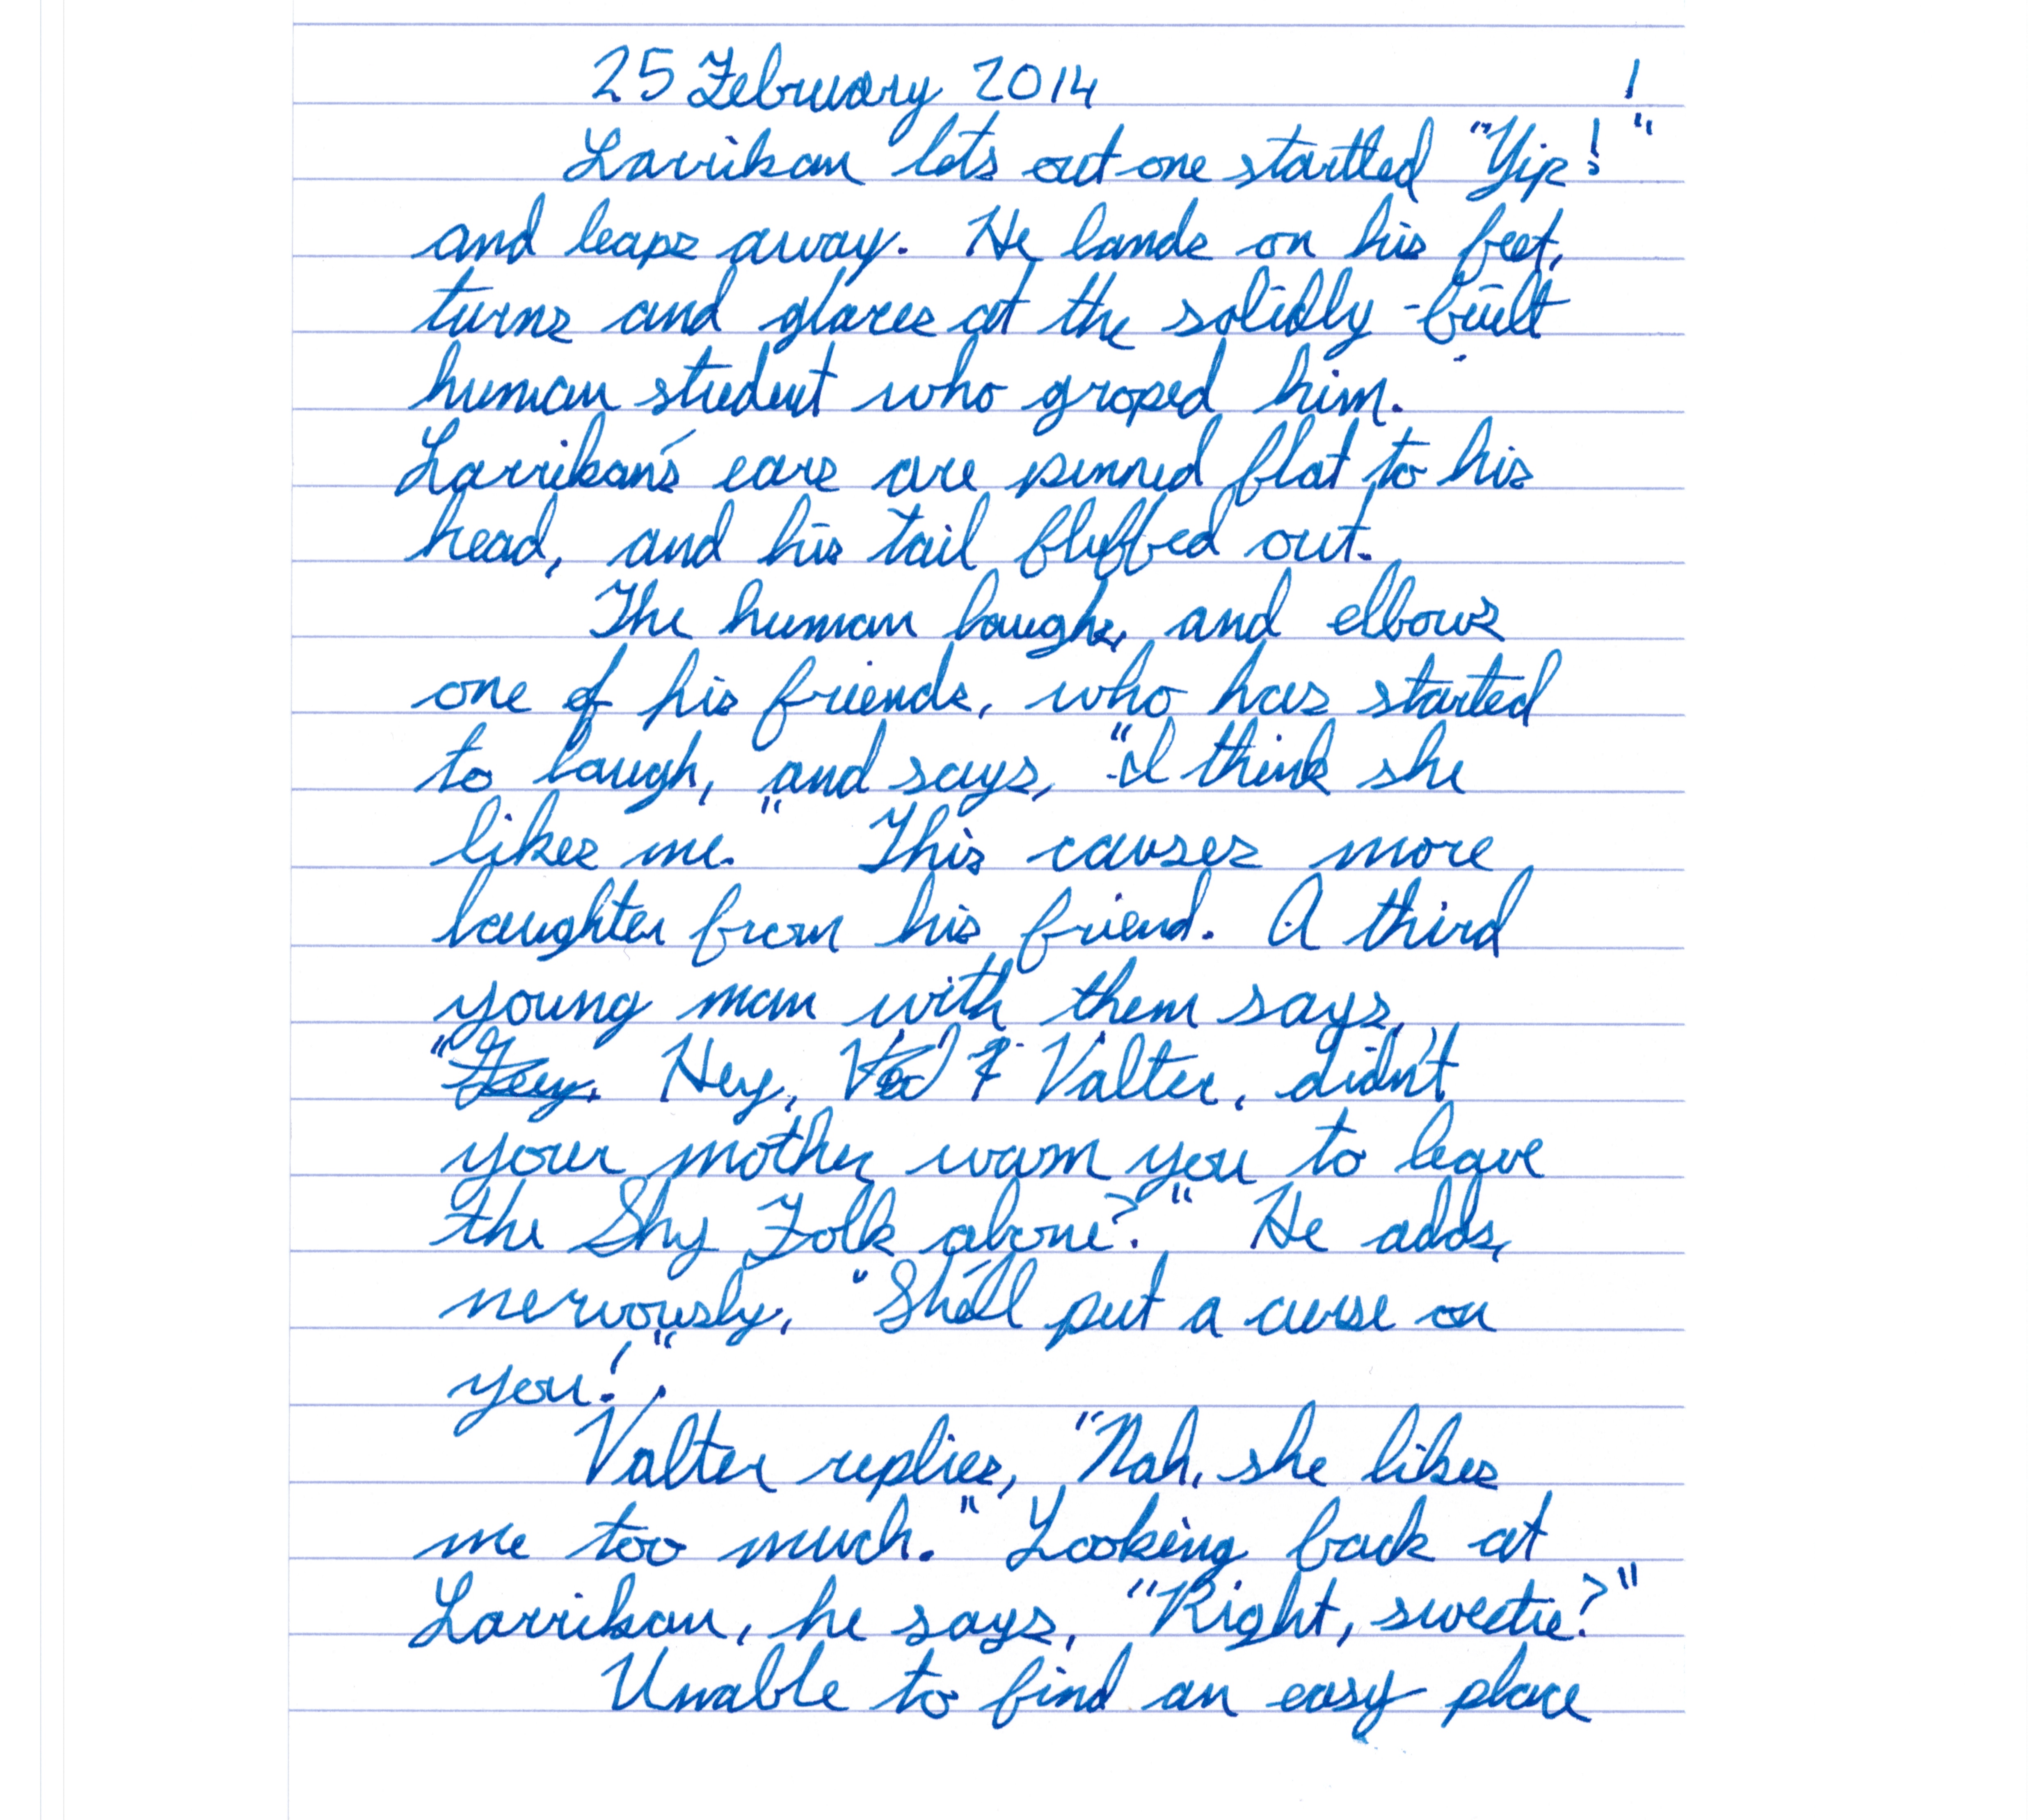 25 February 2014 1
Larrikan lets out one startled "Yip!"
and leaps away. He lands on his feet,
turns and glares at the solidly-built
human student who groped him.
Larrikan's ears are pinned flat to his
head, and his tail fluffed out.
The human laughs, and elbows
one of his friends, who has started
to laugh, and says, "I think she
likes me." This causes more
laughter from his friend. A third
young man with them says,
"Hey, Hey, Valter, didn't
your mother warn you to leave
the Shy Folk alone?" He adds,
nervously, "She'll put a curse on
you!"
Valter replies, "Nah, she likes
me too much." Looking back at
Larrikan, he says, "Right, sweetie?"
Unable to find an easy place